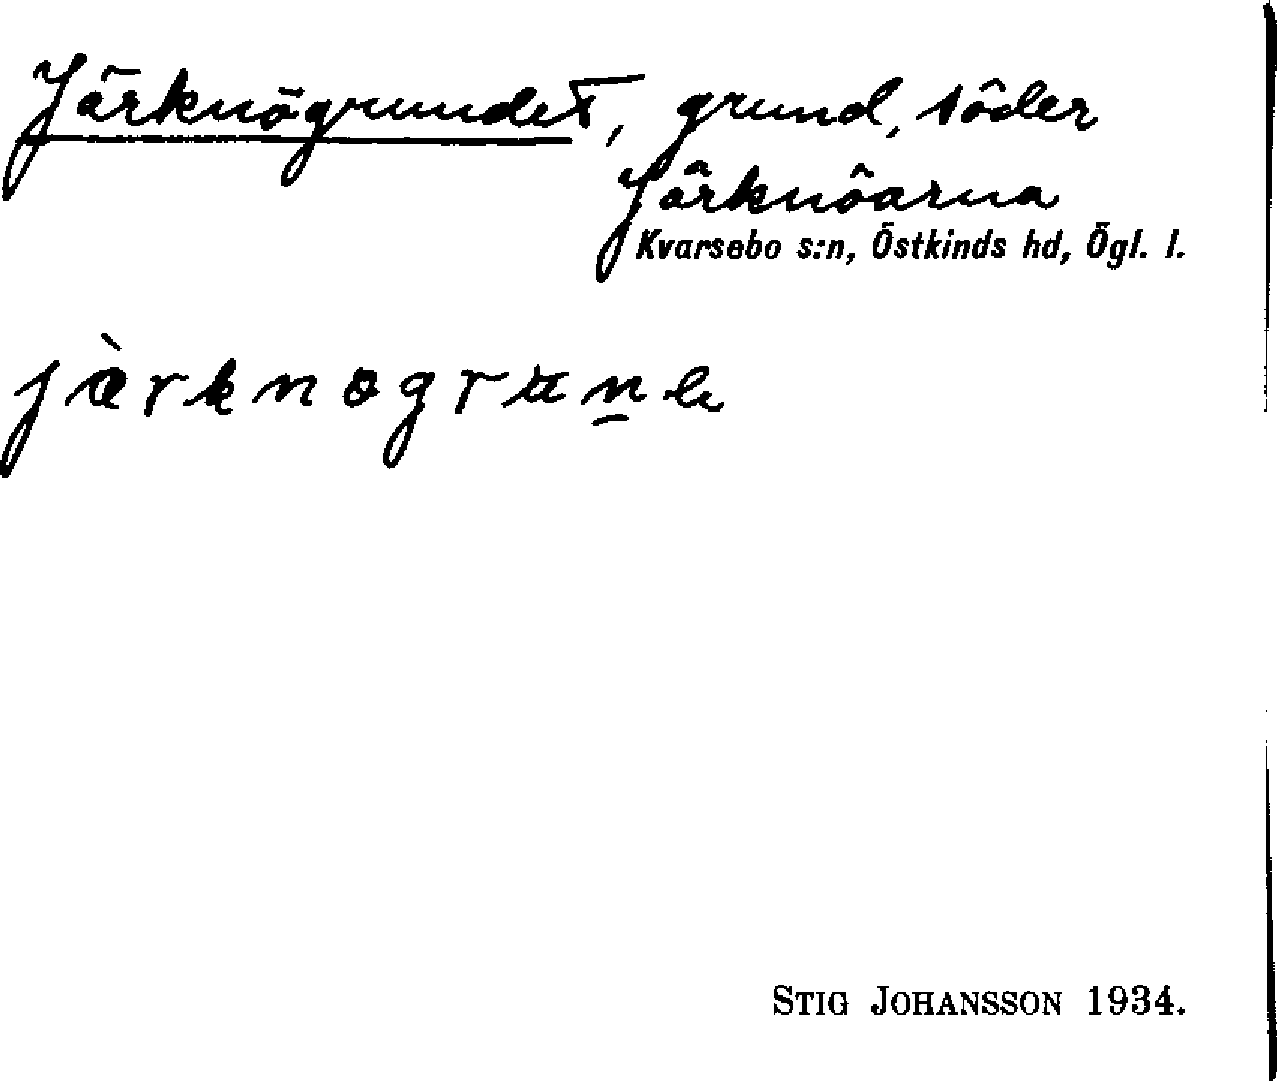 Järknögrundet, grund, söder
Järknöarna
Kvarsebo s:n, Östkinds hd, Ögl. l.
STIG JOHANSSON 1934.